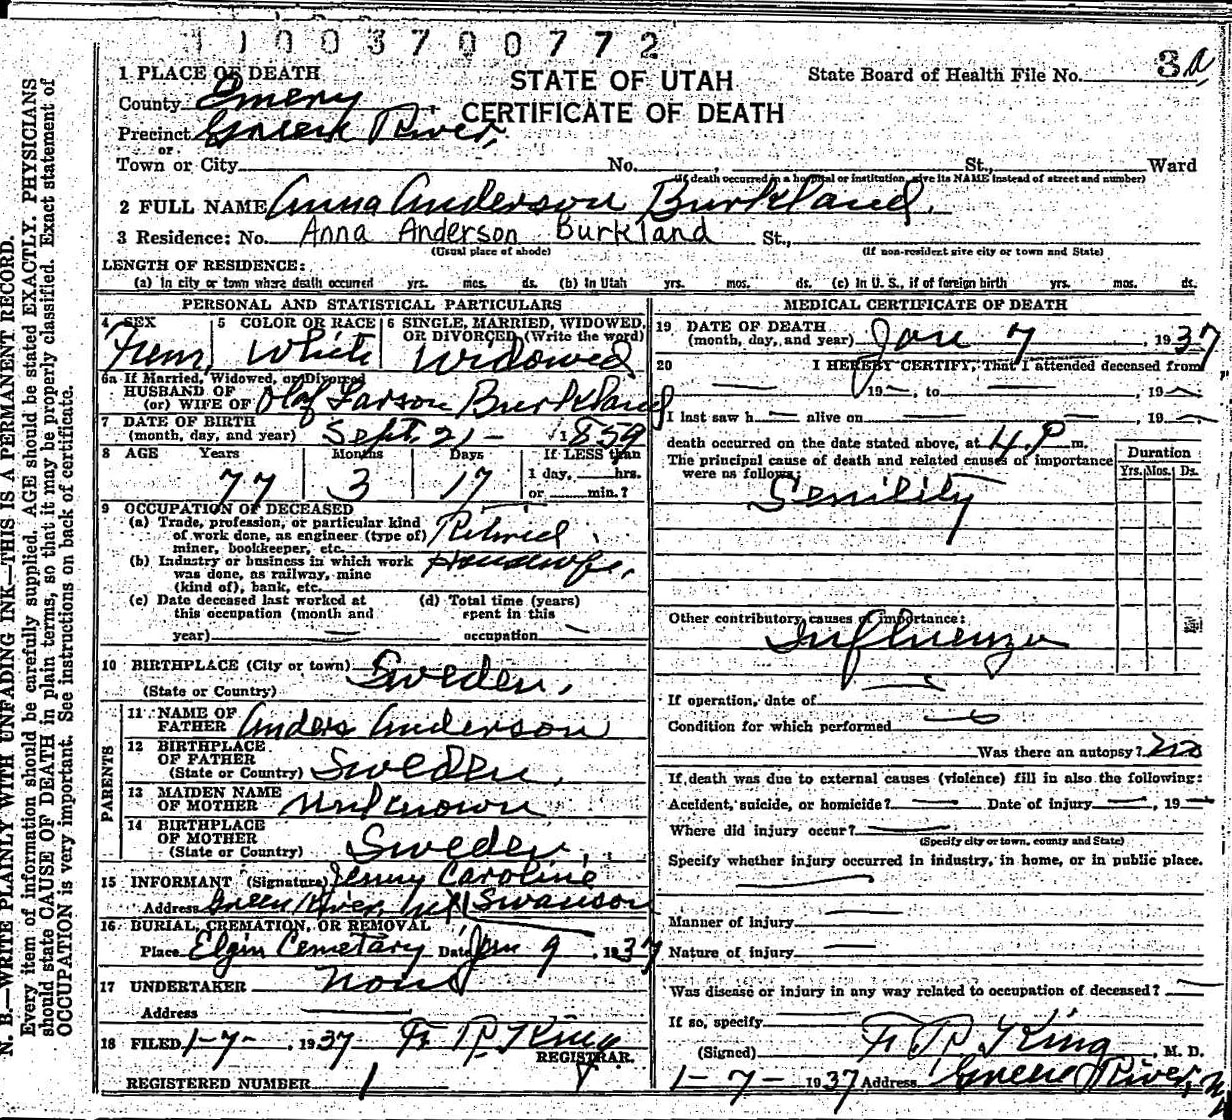 11003700772
STATE OF UTAH
CERTIFICATE OF DEATH
State Board of Health File No. 3a
1 PLACE OF DEATH
County Emery
Precinct Green River,
or
Town or City No. , St., Ward
(If death occurred in a hospital or institution, give its NAME instead of street and number)
2 FULL NAME Anna Anderson Burkland.
3 Residence: No. Anna Anderson Burkland St.,
(Usual place of abode) (If non-resident give city or town and State)
LENGTH OF RESIDENCE:
(a) In city or town where death occurred yrs. mos. ds. (b) In Utah yrs. mos. ds. (c) In U. S., if of foreign birth yrs. mos. ds.
PERSONAL AND STATISTICAL PARTICULARS
4 SEX 5 COLOR OR RACE 6 SINGLE, MARRIED, WIDOWED, OR DIVORCED (Write the word)
Fem, White Widowed
6a If Married, Widowed, or Divorced
HUSBAND OF
(or) WIFE OF Olaf Larson Burkland
7 DATE OF BIRTH
(month, day, and year) Sept. 21 - 1859
8 AGE Years Months Days If LESS than
77 3 17 1 day, hrs.
or min.?
9 OCCUPATION OF DECEASED
(a) Trade, profession, or particular kind
of work done, as engineer (type of) Retired
miner, bookkeeper, etc.
(b) Industry or business in which work Housewife,
was done, as railway, mine
(kind of), bank, etc.
(c) Date deceased last worked at (d) Total time (years)
this occupation (month and spent in this
year) — occupation —
10 BIRTHPLACE (City or town) Sweden,
(State or Country)
PARENTS
11 NAME OF
FATHER Anders Anderson
12 BIRTHPLACE
OF FATHER
(State or Country) Sweden,
13 MAIDEN NAME
OF MOTHER Unknown
14 BIRTHPLACE
OF MOTHER
(State or Country) Sweden,
15 INFORMANT (Signature) Jenny Caroline
Address Green River, Ut Swanson
16 BURIAL, CREMATION, OR REMOVAL
Place Elgin Cemetary Date Jan 9, 1937
17 UNDERTAKER None
Address
18 FILED 1-7-, 1937 F. R. King
REGISTRAR.
REGISTERED NUMBER 1
MEDICAL CERTIFICATE OF DEATH
19 DATE OF DEATH
(month, day, and year) Jan 7, 1937
20 I HEREBY CERTIFY, That I attended deceased from
— 19—, to — — 19—
I last saw h— alive on — — , 19—
death occurred on the date stated above, at 4 P m.
The principal cause of death and related causes of importance
were as follows:
Senility
Duration
Yrs. Mos. Ds.
Other contributory causes of importance:
Influenza
If operation, date of
Condition for which performed
Was there an autopsy? no
If death was due to external causes (violence) fill in also the following:
Accident, suicide, or homicide? — Date of injury —, 19—
Where did injury occur? —
(Specify city or town, county and State)
Specify whether injury occurred in industry, in home, or in public place.
Manner of injury —
Nature of injury —
Was disease or injury in any way related to occupation of deceased? —
If so, specify
(Signed) F. R. King, M. D.
1-7-1937 Address Green River,
N. B.—WRITE PLAINLY WITH UNFADING INK—THIS IS A PERMANENT RECORD.
Every item of information should be carefully supplied. AGE should be stated EXACTLY. PHYSICIANS
should state CAUSE OF DEATH in plain terms, so that it may be properly classified. Exact statement of
OCCUPATION is very important. See instructions on back of certificate.